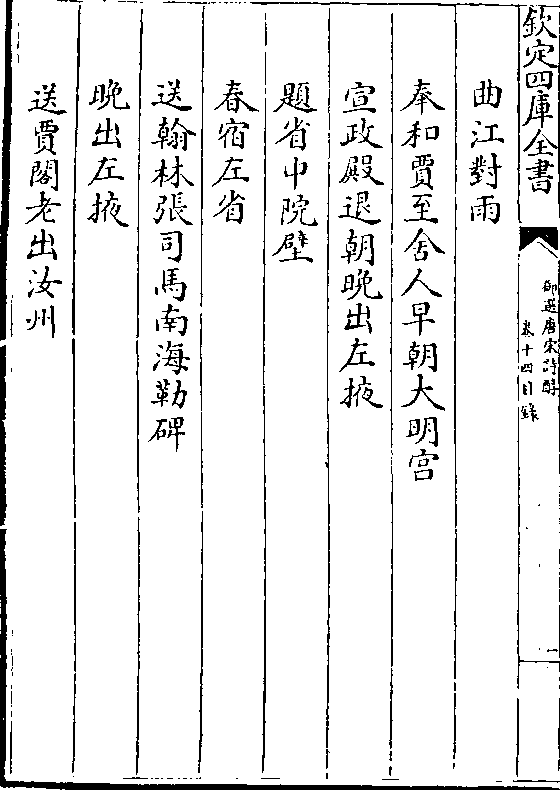 欽定四庫全書
御選唐宋詩醇
卷十四目錄
一
曲江對雨
奉和賈至舍人早朝大明宮
宣政殿退朝晚出左掖
題省中院壁
春宿左省
送翰林張司馬南海勒碑
晚出左掖
送賈閣老出汝州